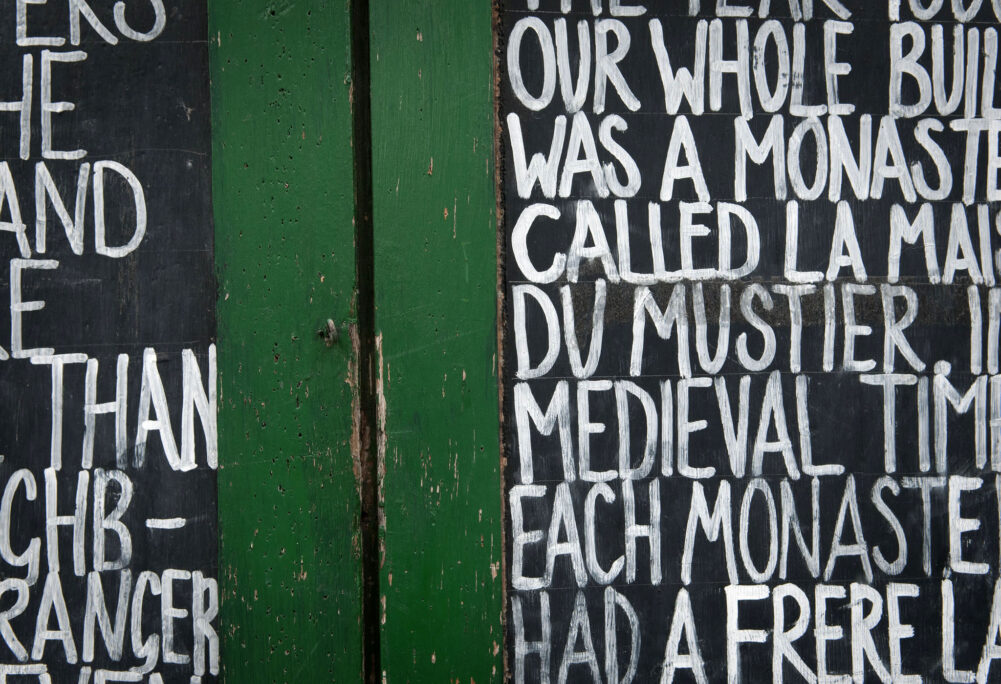 ERS
HE
AND
E
THAN
GHB -
RANGER
THE YEAR
OUR WHOLE BUIL
WAS A MONASTE
CALLED LA MAI
DU MUSTIER. I
MEDIEVAL TIME
EACH MONASTE
HAD A FRERE LA